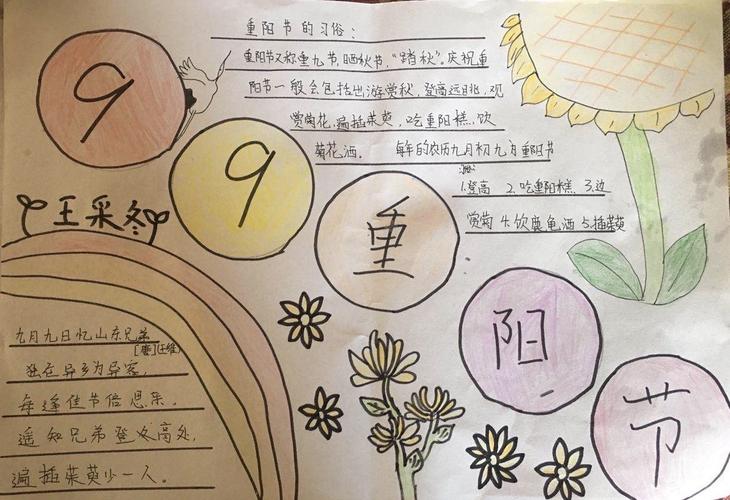 重阳节的习俗：
重阳节又称重九节，晒秋节，“踏秋”。庆祝重
阳节一般会包括出游赏秋，登高远眺，观
赏菊花，遍插茱萸，吃重阳糕，饮
菊花酒。 每年的农历九月初九为重阳节
1.登高 2.吃重阳糕 3.边
赏菊 4.饮鹿龟酒 5.插茱萸
9
9
重
阳
节
王采冬
九月九日忆山东兄弟
[唐]王维
独在异乡为异客，
每逢佳节倍思亲。
遥知兄弟登处高处，
遍插茱萸少一人。